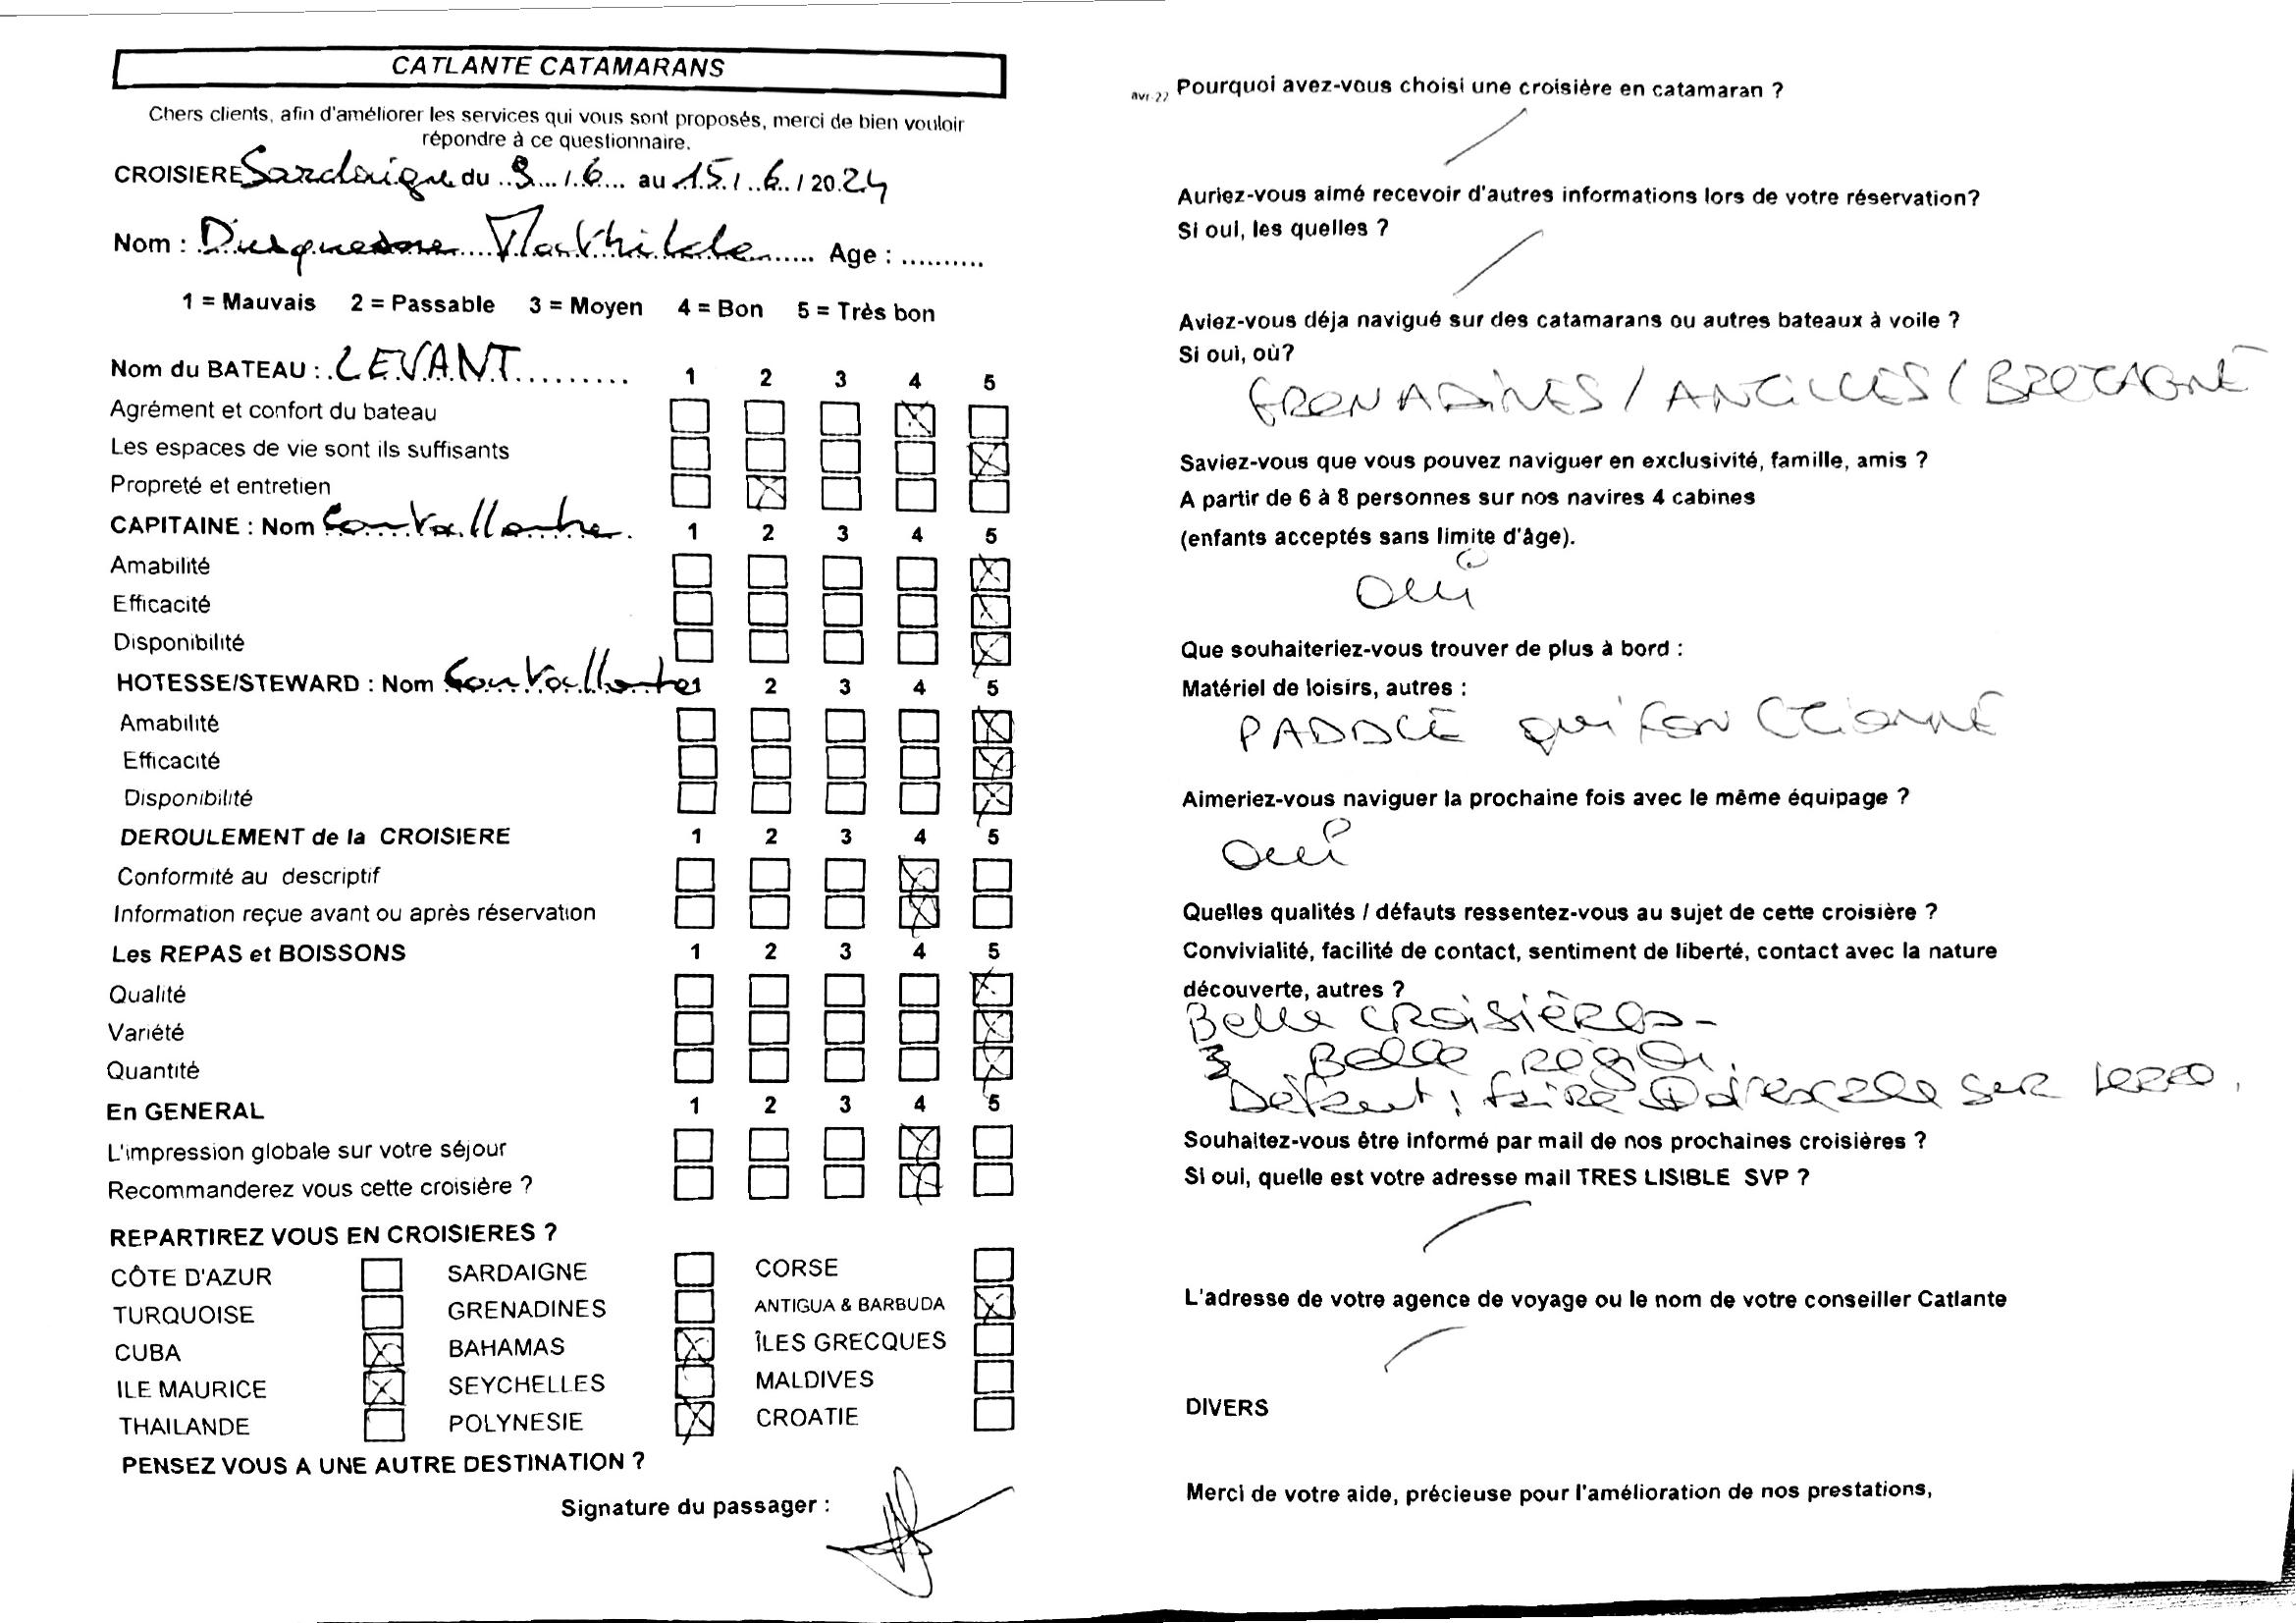 CATLANTE CATAMARANS
Chers clients, afin d'améliorer les services qui vous sont proposés, merci de bien vouloir
répondre à ce questionnaire.
CROISIERE Sardaigne du 9 / 6 au 15 / 6 / 2024
Nom : Duquesne Mathilde Age : ..........
1 = Mauvais 2 = Passable 3 = Moyen 4 = Bon 5 = Très bon
Nom du BATEAU : LEVANT 1 2 3 4 5
Agrément et confort du bateau
Les espaces de vie sont ils suffisants
Propreté et entretien
CAPITAINE : Nom 1 2 3 4 5
Amabilité
Efficacité
Disponibilité
HOTESSE/STEWARD : Nom 1 2 3 4 5
Amabilité
Efficacité
Disponibilité
DEROULEMENT de la CROISIERE 1 2 3 4 5
Conformité au descriptif
Information reçue avant ou après réservation
Les REPAS et BOISSONS 1 2 3 4 5
Qualité
Variété
Quantité
En GENERAL 1 2 3 4 5
L'impression globale sur votre séjour
Recommanderez vous cette croisière ?
REPARTIREZ VOUS EN CROISIERES ?
CÔTE D'AZUR SARDAIGNE CORSE
TURQUOISE GRENADINES ANTIGUA & BARBUDA
CUBA BAHAMAS ÎLES GRECQUES
ILE MAURICE SEYCHELLES MALDIVES
THAILANDE POLYNESIE CROATIE
PENSEZ VOUS A UNE AUTRE DESTINATION ?
Signature du passager :
avr-22
Pourquoi avez-vous choisi une croisière en catamaran ?
Auriez-vous aimé recevoir d'autres informations lors de votre réservation?
Si oui, les quelles ?
Aviez-vous déja navigué sur des catamarans ou autres bateaux à voile ?
Si oui, où?
GRENADINES / ANTILLES / BRETAGNE
Saviez-vous que vous pouvez naviguer en exclusivité, famille, amis ?
A partir de 6 à 8 personnes sur nos navires 4 cabines
(enfants acceptés sans limite d'âge).
oui
Que souhaiteriez-vous trouver de plus à bord :
Matériel de loisirs, autres :
PADDLE qui FONCTIONNE
Aimeriez-vous naviguer la prochaine fois avec le même équipage ?
oui
Quelles qualités / défauts ressentez-vous au sujet de cette croisière ?
Convivialité, facilité de contact, sentiment de liberté, contact avec la nature
découverte, autres ?
Belle CROISIÈRE -
Belle
Défaut : faire + d'escale sur terre.
Souhaitez-vous être informé par mail de nos prochaines croisières ?
Si oui, quelle est votre adresse mail TRES LISIBLE SVP ?
L'adresse de votre agence de voyage ou le nom de votre conseiller Catlante
DIVERS
Merci de votre aide, précieuse pour l'amélioration de nos prestations,